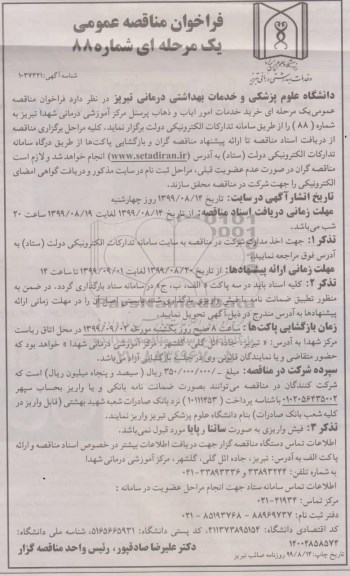 فراخوان مناقصه عمومی
یک مرحله ای شماره ۸۸
شناسه آگهی: ۱۰۳۷۲۲۱
دانشگاه علوم پزشکی و خدمات بهداشتی درمانی تبریز در نظر دارد فراخوان مناقصه
عمومی یک مرحله ای خرید خدمات امور ایاب و ذهاب پرسنل مرکز آموزشی درمانی شهدا تبریز به
شماره (۸۸) را از طریق سامانه تدارکات الکترونیکی دولت برگزار نماید. کلیه مراحل برگزاری مناقصه
از دریافت اسناد مناقصه تا ارائه پیشنهاد مناقصه گران و بازگشایی پاکت‌ها از طریق درگاه سامانه
تدارکات الکترونیکی دولت (ستاد) به آدرس (www.setadiran.ir) انجام خواهد شد و لازم است
مناقصه گران در صورت عدم عضویت قبلی، مراحل ثبت نام در سایت مذکور و دریافت گواهی امضای
الکترونیکی را جهت شرکت در مناقصه محقق سازند.
تاریخ انتشار آگهی در سایت: تاریخ ۱۳۹۹/۰۸/۱۴ روز چهارشنبه
مهلت زمانی دریافت اسناد مناقصه: از تاریخ ۱۳۹۹/۰۸/۱۴ لغایت ۱۳۹۹/۰۸/۱۹ لغایت ساعت ۲۰
شب می‌باشد.
تذکر ۱: جهت اخذ مدارک شرکت در مناقصه به سایت سامانه تدارکات الکترونیکی دولت (ستاد) به
آدرس فوق مراجعه نمایید.
مهلت زمانی ارائه پیشنهادها: از تاریخ ۱۳۹۹/۰۸/۲۰ لغایت ۱۳۹۹/۰۹/۰۱ تا ساعت ۱۴
تذکر ۲: کلیه اسناد باید در سه پاکت «الف، ب، ج» در سامانه ستاد بارگذاری گردد، در ضمن به
منظور تطبیق ضمانت نامه را در مهلت زمانی ارائه
پیشنهادها به آدرس مندرج در ذیل آگهی تحویل نمایید.
زمان بازگشایی پاکت‌ها: ساعت ۸ صبح روز یکشنبه مورخه ۱۳۹۹/۰۹/۰۲ در محل اتاق ریاست
مرکز شهدا به آدرس: «تبریز، جاده ائل گلی، گلشهر، مرکز آموزشی درمانی شهدا» خواهد بود که
حضور متقاضی و یا نمایندگان قانونی وی در جلسه بازگشایی آزاد می‌باشد.
سپرده شرکت در مناقصه: مبلغ ۳۵۰/۰۰۰/۰۰۰/- ریال (سیصد و پنجاه میلیون ریال) است که
شرکت کنندگان در مناقصه می‌توانند بصورت ضمانت نامه بانکی و یا واریز بحساب سپهر
۰۱۰۲۰۵۶۴۳۵۰۰۲ با شناسه پرداخت (۱۰۱۱۱۴۵۳) نزد بانک صادرات شعبه شهید بهشتی (قابل واریز در
کلیه شعب بانک صادرات) بنام دانشگاه علوم پزشکی تبریز واریز نمایند.
تذکر ۳: فیش واریزی به صورت ساتنا و پایا مورد قبول نمی‌باشد.
اطلاعات تماس دستگاه مناقصه گزار جهت دریافت اطلاعات بیشتر در خصوص اسناد مناقصه و ارائه
پاکت الف به آدرس: تبریز، جاده ائل گلی، گلشهر، مرکز آموزشی درمانی شهدا
به شماره تلفن: ۳۳۸۹۳۲۴۴ و ۳۳۸۹۳۳۳۶-۰۴۱
اطلاعات تماس سامانه ستاد جهت انجام مراحل عضویت در سامانه:
مرکز تماس: ۴۱۹۳۴-۰۲۱
دفتر ثبت نام: ۸۸۹۶۹۷۳۷ - ۸۵۱۹۳۷۶۸-۰۲۱
کد اقتصادی دانشگاه: ۴۱۱۳۷۳۸۹۵۱۵۴، کد پستی دانشگاه: ۵۱۶۵۶۶۵۹۳۱، شناسه ملی دانشگاه:
۱۴۰۰۲۸۵۸۵۷۴
دکتر علیرضا صادقپور، رئیس واحد مناقصه گزار
تاریخ چاپ: ۹۹/۸/۱۴ روزنامه صائب تبریز